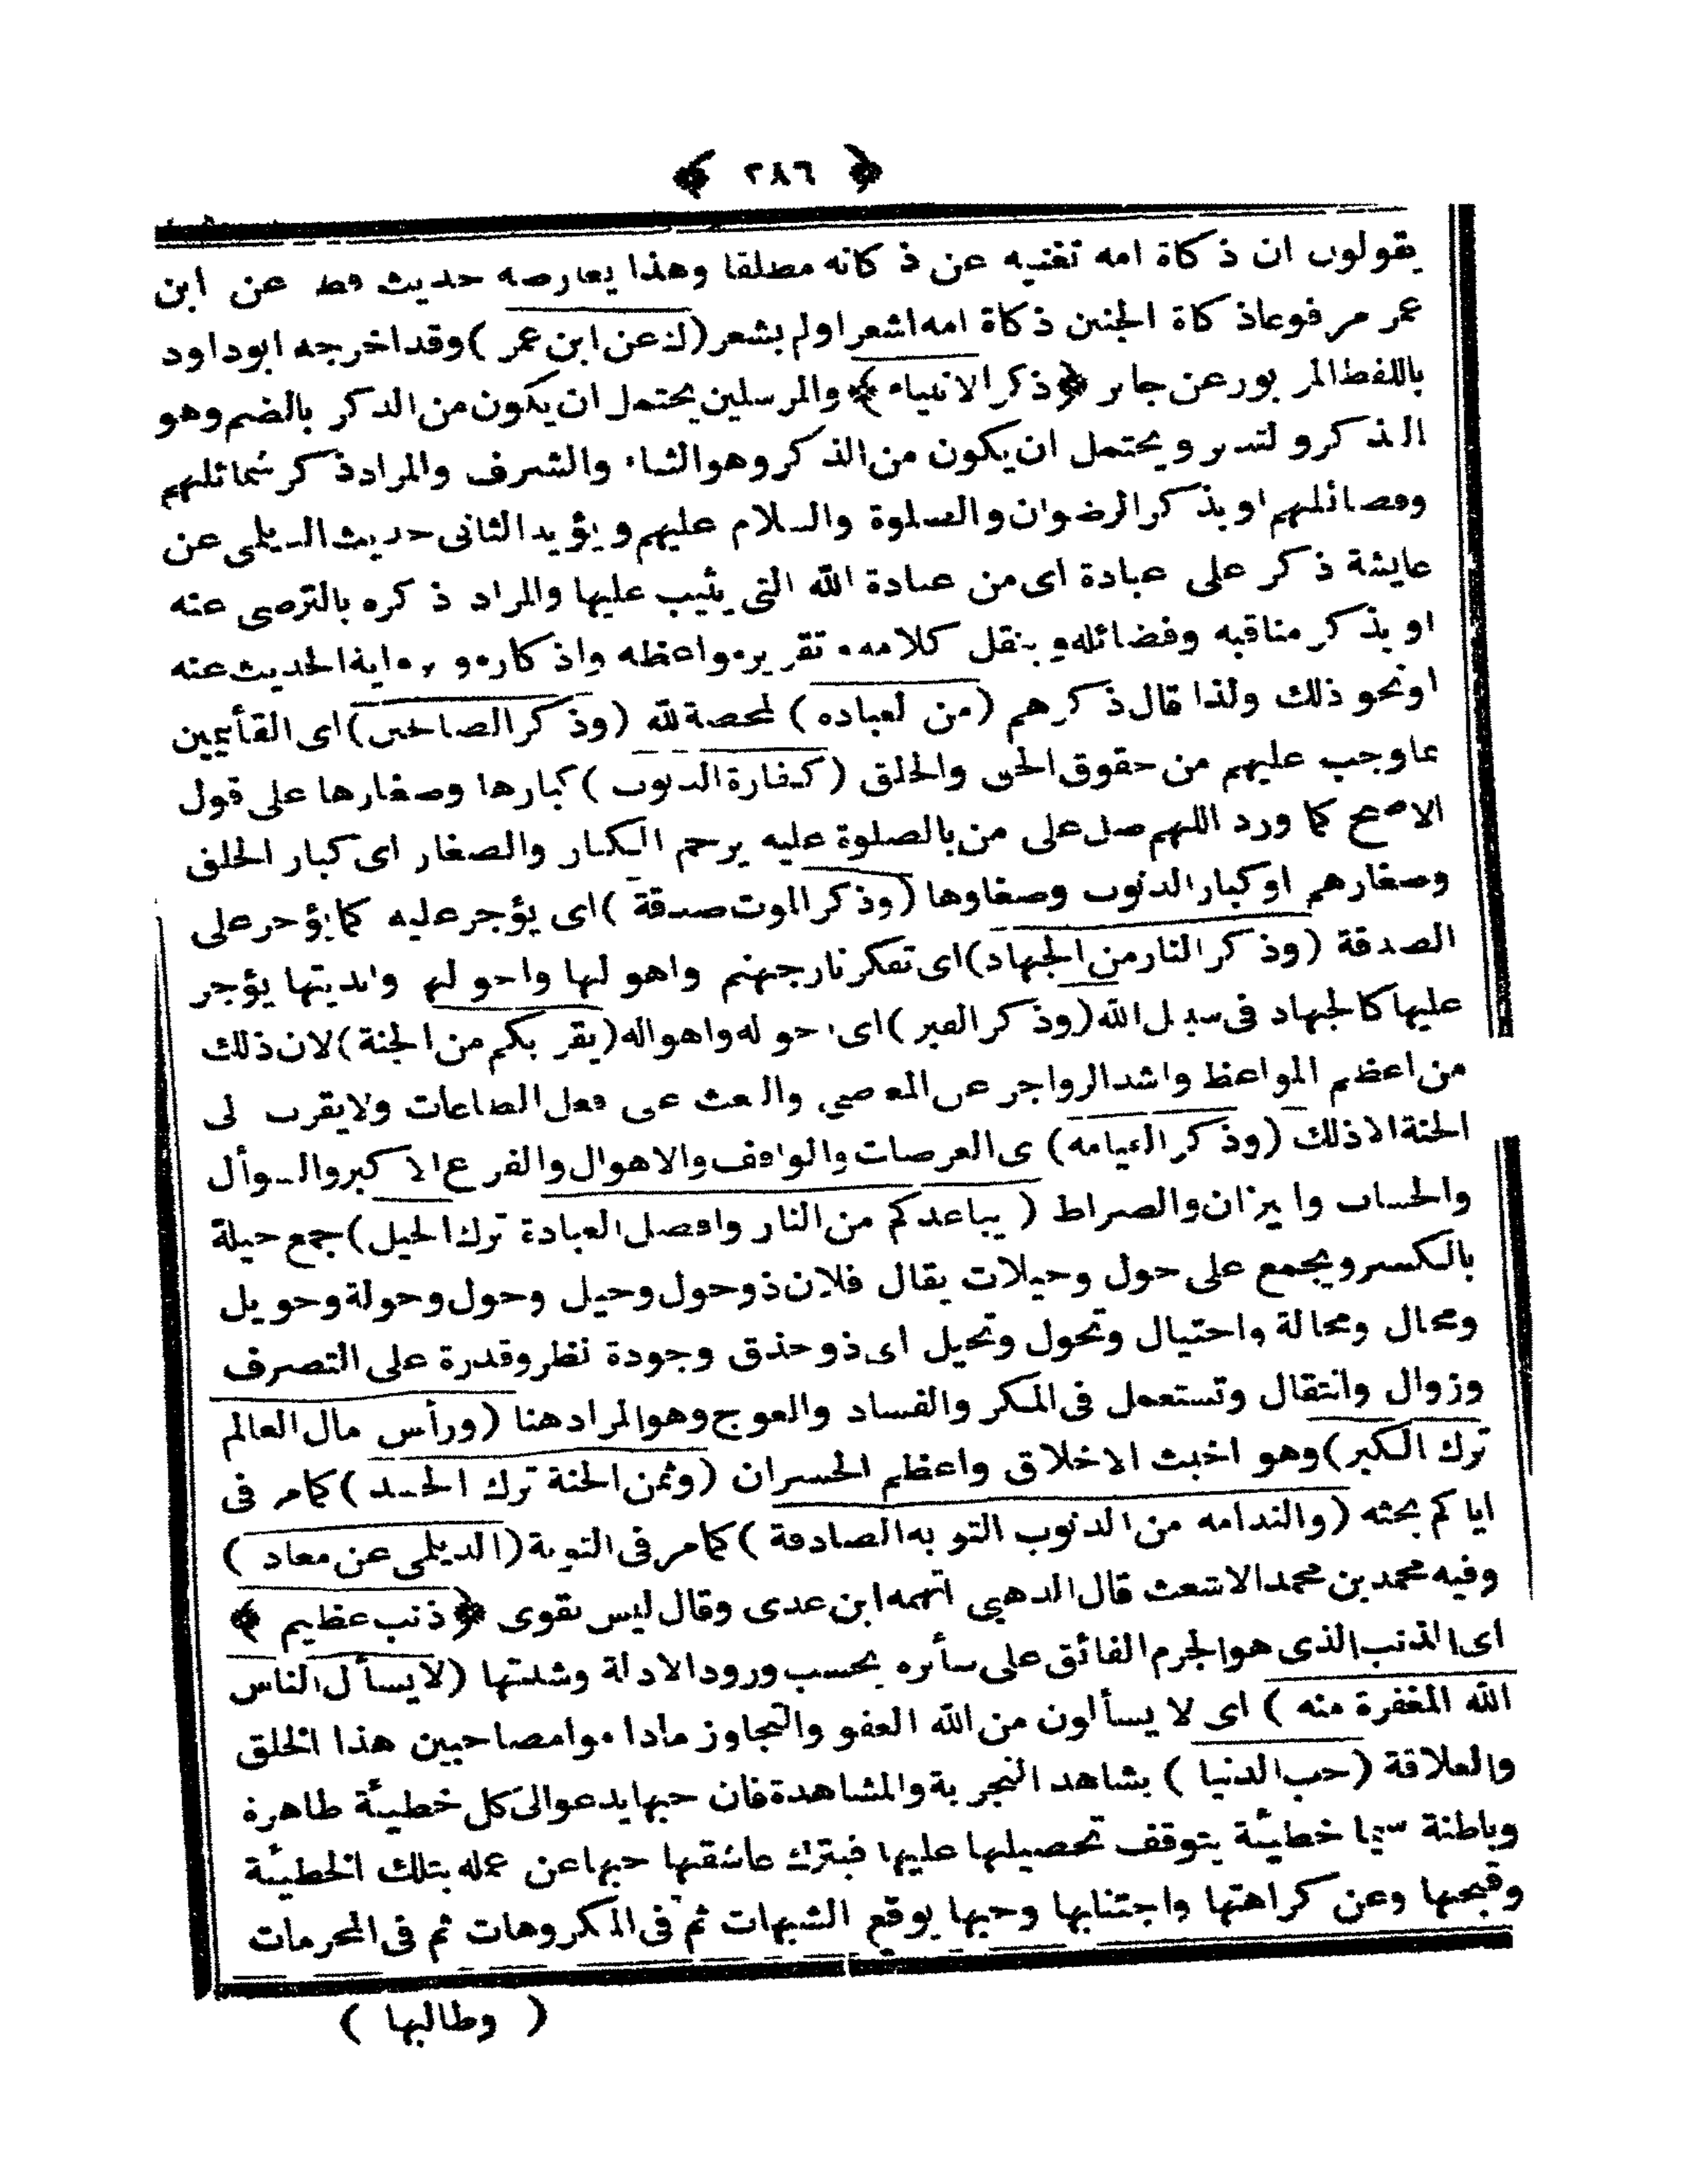 ﴿ ٢٨٦ ﴾
يقولون ان ذكاة امه تغنيه عن ذكاته مطلقا وهذا يعارضه حديث قط عن ابن
عمر مرفوعا ذكاة الجنين ذكاة امه اشعر اولم يشعر (ك عن ابن عمر) وقد اخرجه ابوداود
باللفظ المزبور عن جابر ﴿ذكر الانبياء﴾ والمرسلين يحتمل ان يكون من الذكر بالضم وهو
التذكر والتدبر ويحتمل ان يكون من الذكر وهو الثناء والشرف والمراد ذكر شمائلهم
وفضائلهم او يذكر الرضوان والصلوة والسلام عليهم ويؤيد الثانى حديث الديلمى عن
عايشة ذكر على عبادة اى من عبادة الله التى يثيب عليها والمراد ذكره بالترضى عنه
او يذكر مناقبه وفضائله وينقل كلامه وتقرير مواعظه واذكاره ورواية الحديث عنه
اونحو ذلك ولذا قال ذكرهم (من العباده) لمحصة لله (وذكر الصالحين) اى القائمين
بما وجب عليهم من حقوق الحق والخلق (كفارة الذنوب) كبارها وصغارها على قول
الاصح كما ورد اللهم صل على من بالصلوة عليه يرحم الكبار والصغار اى كبار الخلق
وصغارهم او كبار الذنوب وصغاوها (وذكر الموت صدقة) اى يؤجر عليه كما يؤجر على
الصدقة (وذكر النار من الجهاد) اى تفكر نار جهنم واهولها واحولها وابديتها يؤجر
عليها كالجهاد فى سبيل الله (وذكر القبر) اى احوله واهواله (يقربكم من الجنة) لان ذلك
من اعظم المواعظ واشد الزواجر عن المعاصى والبعث على فعل الطاعات ولا يقرب الى
الجنة الا ذلك (وذكر القيامه) اى العرصات والمواقف والاهوال والفزع الاكبر والسوأل
والحساب والميزان والصراط (يباعدكم من النار وافضل العبادة ترك الحيل) جمع حيلة
بالكسر ويجمع على حول وحيلات يقال فلان ذوحول وحيل وحول وحولة وحويل
ومحال ومحالة واحتيال وتحول وتحيل اى ذو حذق وجودة نظر وقدرة على التصرف
وزوال وانتقال وتستعمل فى المكر والفساد والعوج وهو المراد هنا (ورأس مال العالم
ترك الكبر) وهو اخبث الاخلاق واعظم الخسران (وثمن الجنة ترك الحسد) كما مر فى
اياكم بحثه (والندامه من الذنوب التوبه الصادقة) كما مر فى التوبة (الديلمى عن معاذ)
وفيه محمد بن محمد الاشعث قال الذهبى اتهمه ابن عدى وقال ليس بقوى ﴿ذنب عظيم﴾
اى الذنب الذى هو الجرم الفائق على سأئره بحسب ورود الادلة وشدتها (لا يسأل الناس
الله المغفرة منه) اى لا يسألون من الله العفو والتجاوز مادا موا مصاحبين هذا الخلق
والعلاقة (حب الدنيا) بشاهد التجربة والمشاهدة فان حبها يدعوالى كل خطيئة ظاهرة
وباطنة سيما خطيئة يتوقف تحصيلها عليها فيترك عاشقها حبها عن عمله بتلك الخطيئة
وقبحها وعن كراهتها واجتنابها وحبها يوقع الشبهات ثم فى المكروهات ثم فى المحرمات
( وطالبها )